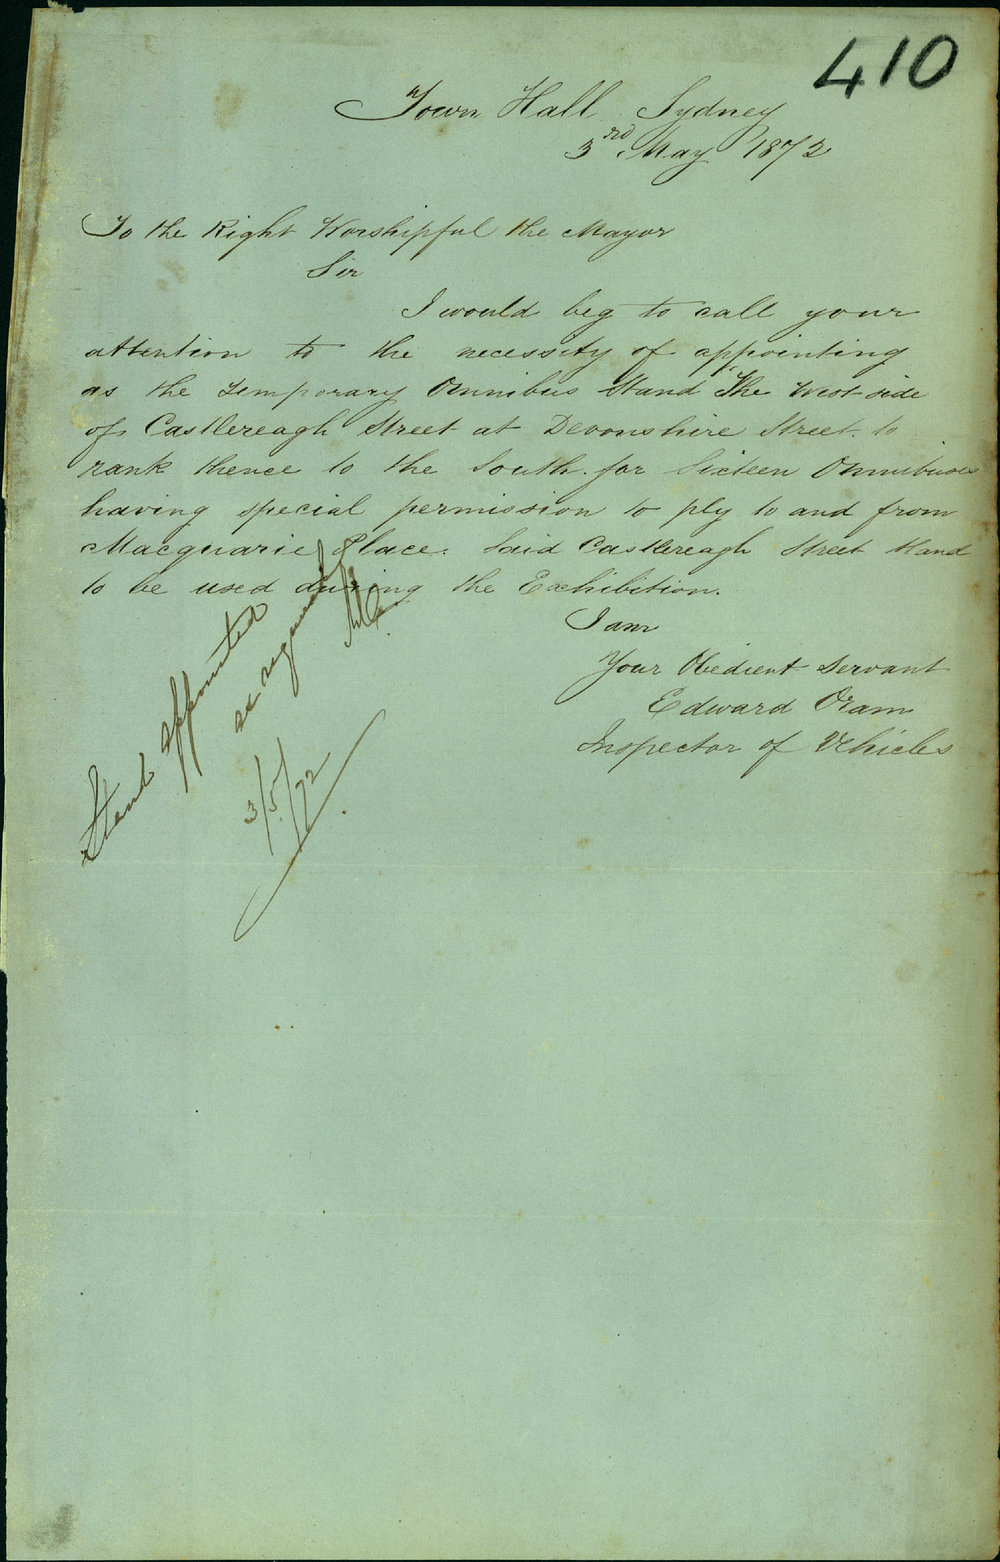 410
Town Hall Sydney
3rd May 1872
To the Right Worshipful the Mayor
Sir
I would beg to call your
attention to the necessity of appointing
as the temporary Omnibus Stand The West side
of Castlereagh Street at Devonshire Street. to
rank thence to the South. for Sixteen Omnibuses
having special permission to ply to and from
Macquarie Place. Said Castlereagh Street Stand
to be used during the Exhibition.
I am
Your Obedient Servant
Edward Oram
Inspector of Vehicles
Stand appointed
as requested
3/5/72